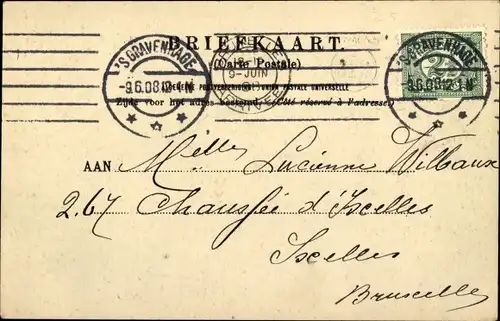 BRIEFKAART.
(Carte Postale)
ALGEMEENE POSTVEREENIGING UNION POSTALE UNIVERSELLE
Zijde voor het adres bestemd. (Côté réservé à l'adresse)
'SGRAVENHAGE
-9.6.08
9-JUIN
'SGRAVENHAGE
9.6.08
2½
AAN Melles Lucienne Wilbaux
267 Chaussée d'Ixelles
Ixelles
Bruxelles